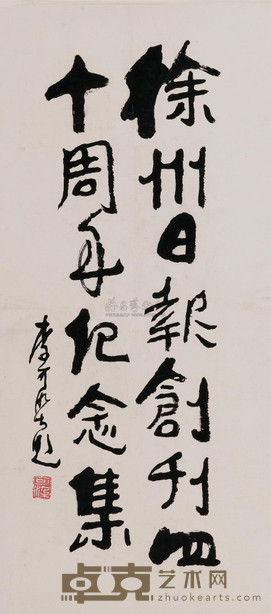 徐州日報創刊四
十周年纪念集
李可染题
卓克艺术网
zhuokearts.com